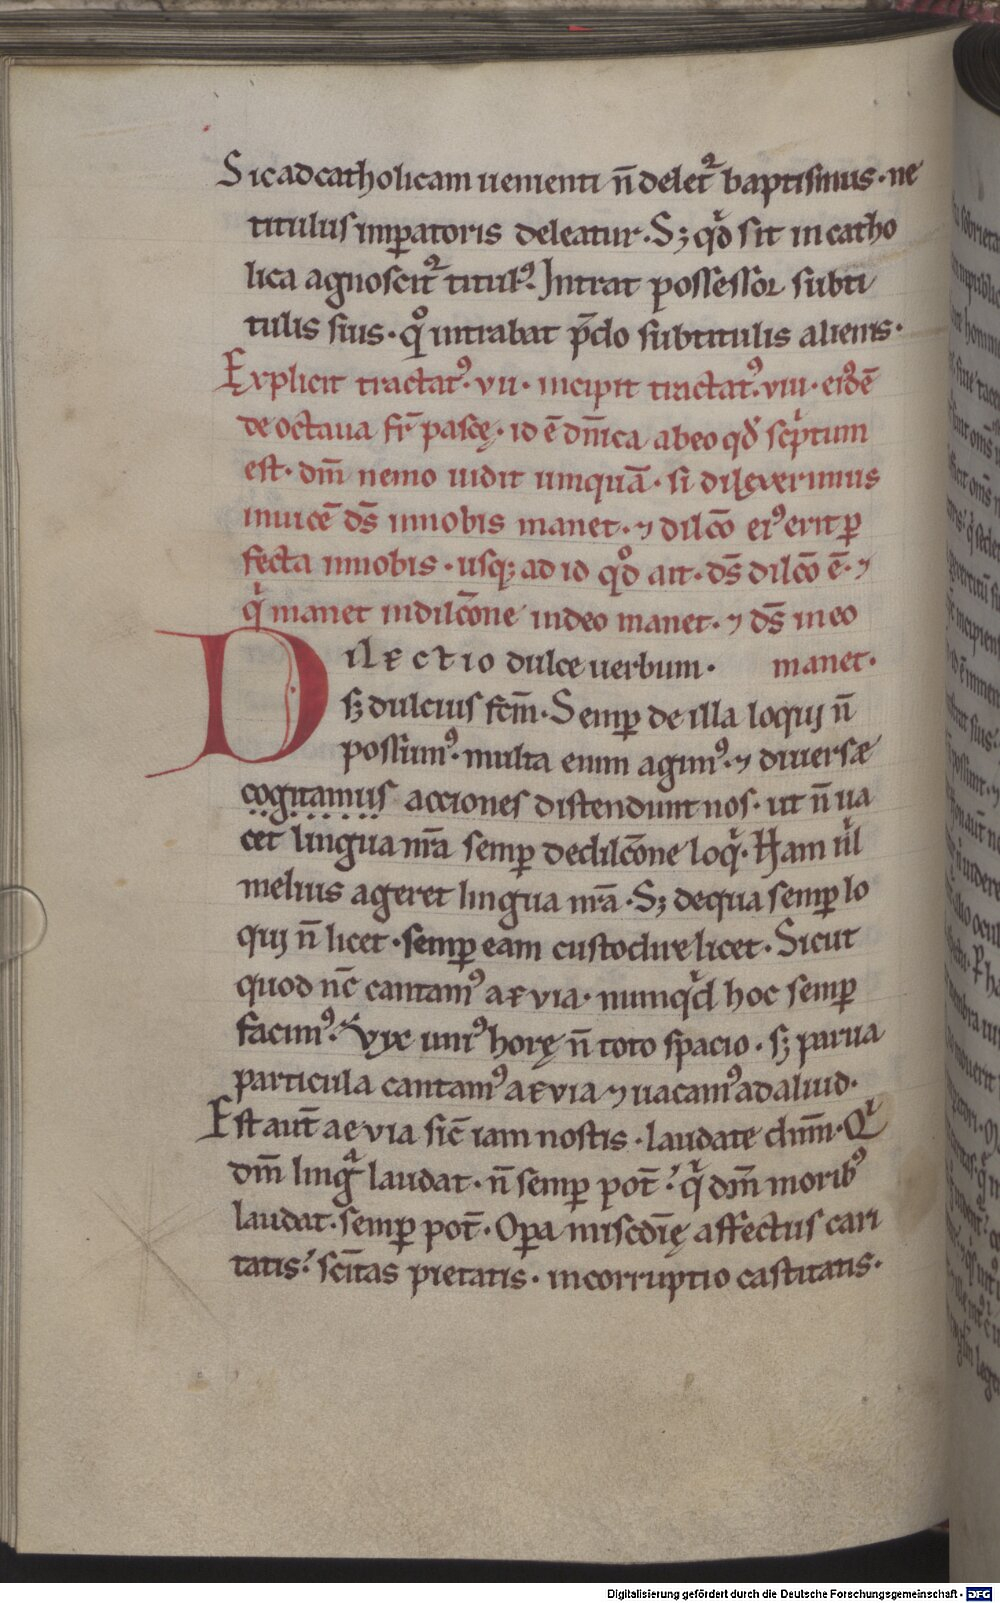 Sic ad catholicam uenienti n̄ delet᷑ baptismus · ne
titulus imꝑatoris deleatur · Sꝫ qd̕ sit in catho
lica agnoscit᷑ titulꝰ. Intrat possessor sub ti
tulis suis · qͦ intrabat p̄do sub titulis alienis ·
Explicit tractatꝰ · vii · incipit tractatꝰ · viii · eiꝰdē
de octaua fr̄ pascę · id ē dn̄ica ab eo qd̕ scͥptum
est · dm̄ nemo uidit umquā · si dilexerimus
inuicē ds̄ in nobis manet · ⁊ dilc̄o eiꝰ erit ꝑ
fecta in nobis · usqꝫ ad id qd̕ ait · ds̄ dilc̄o ē · ⁊
qͥ manet in dilc̄one in deo manet · ⁊ ds̄ in eo
Dilectio dulce uerbum · manet ·
sꝫ dulcius fcm̄ · Semꝑ de illa loqui n̄
possumꝰ · multa enim agimꝰ · ⁊ diuersæ
cogitamus acciones distendunt nos · ut n̄ ua
cet lingua nr̄a semꝑ de dilc̄one loqͥ · Nam nͥl
melius ageret lingua nr̄a · Sꝫ de qua semꝑ lo
qui n̄ licet · semꝑ eam custodire licet · Sicut
quod nc̄ cantamꝰ aevia · numqͥd hoc semꝑ
facimꝰ · Vix uniꝰ horę n̄ toto spacio · sꝫ parua
particula cantamꝰ aevia ⁊ uacamꝰ ad aliud ·
Est aut̄ aevia sic̄ iam nostis · laudate dnm̄ · Qͥ
dm̄ lingᷓ laudat · n̄ semꝑ pot̄ · qͥ dm̄ moribꝰ
laudat · semꝑ pot̄ · Oꝑa misc̄dię affectus cari
tatis · scītas pietatis · incorruptio castitatis ·
Digitalisierung gefördert durch die Deutsche Forschungsgemeinschaft - DFG